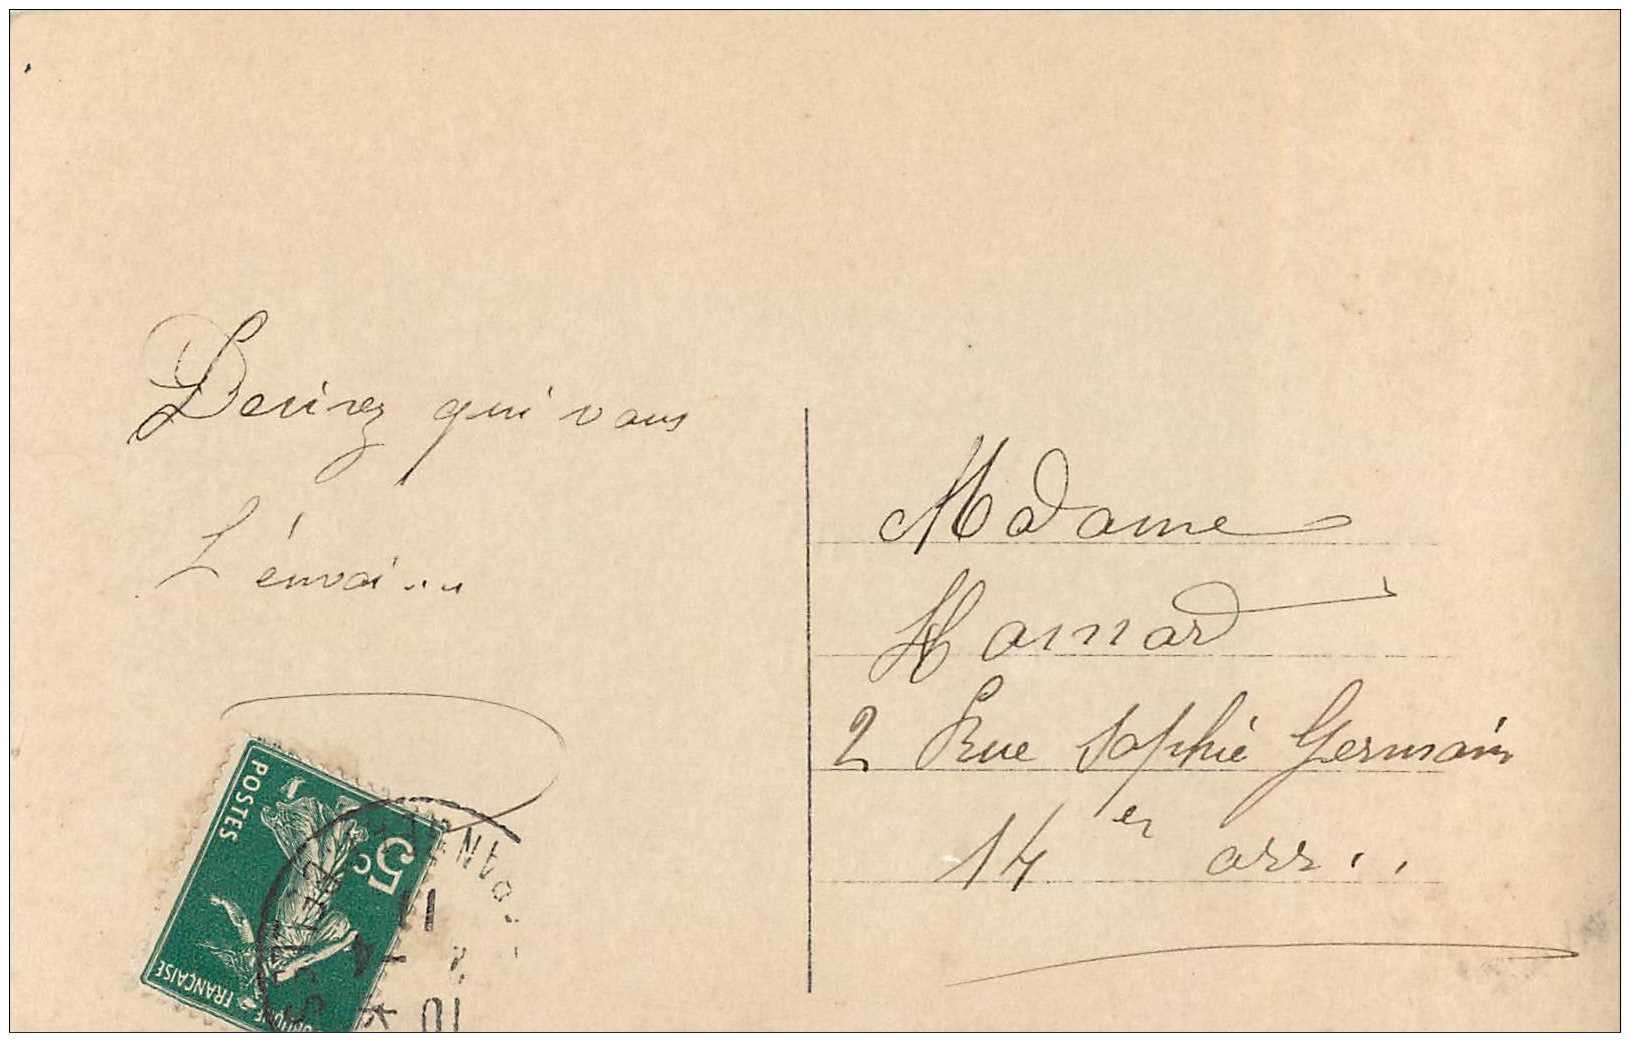 Devinez qui vous
L'énvoi...
Madame
Hamard
2 Rue Sophie Germain
14 er arr..
POSTES
5c
FRANÇAISE